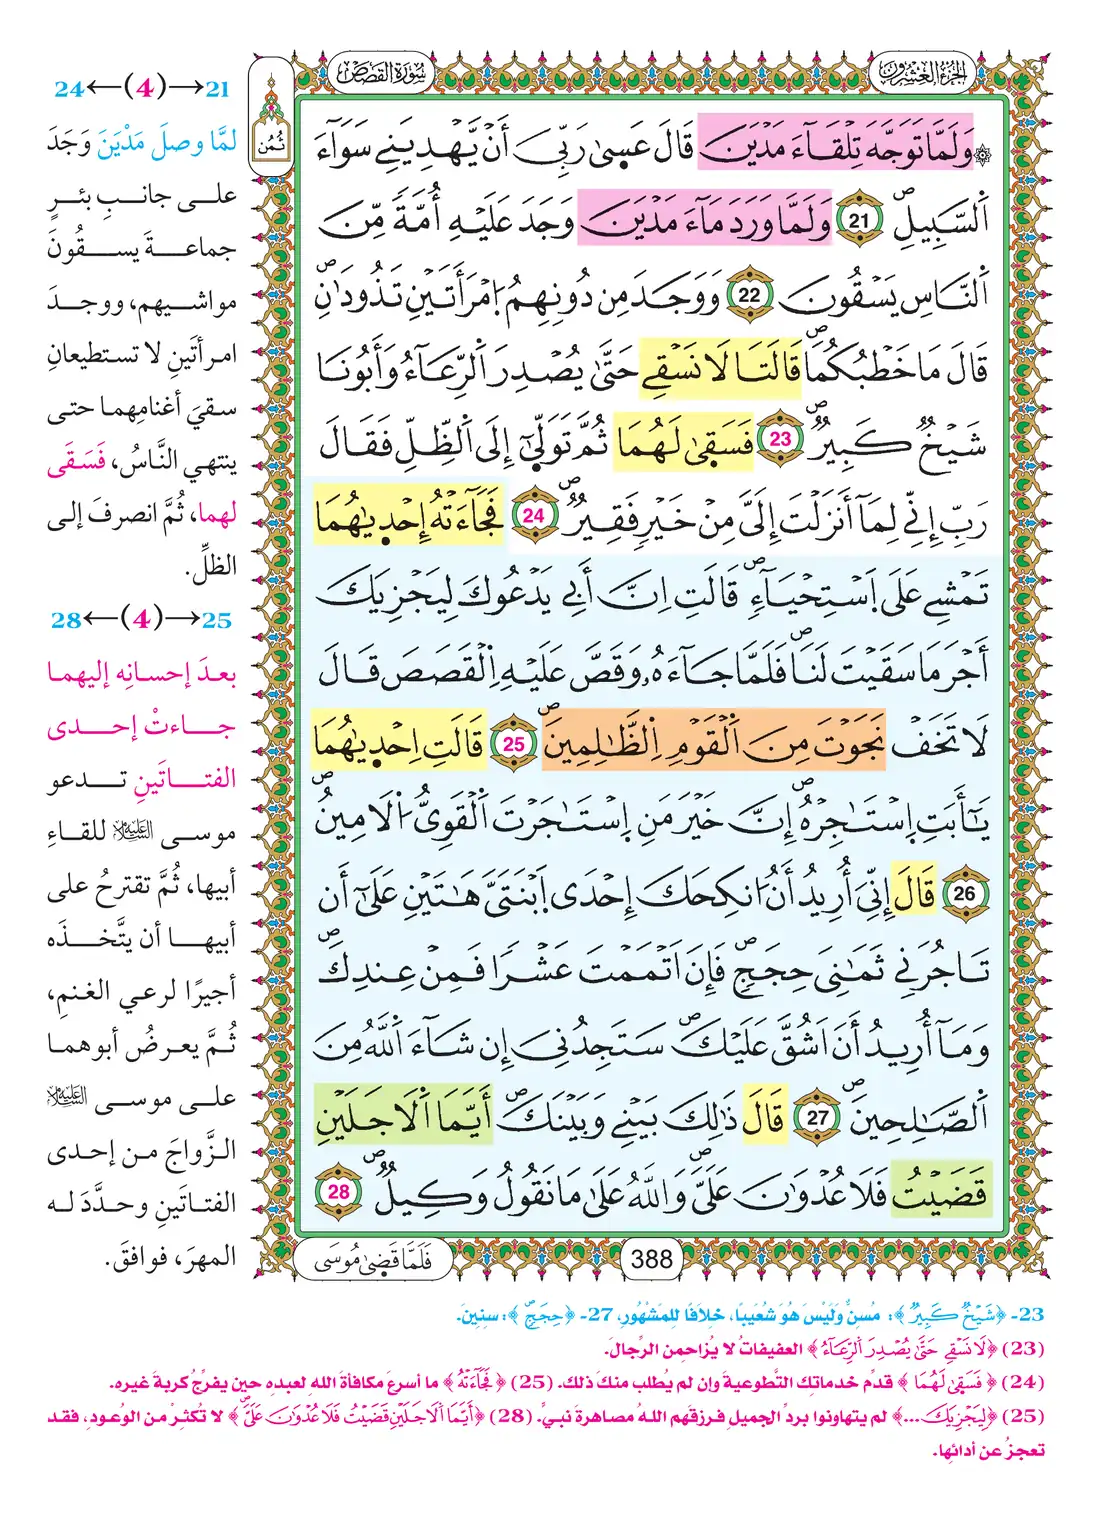 الجزء العشرون
سورة القصص
ثمن
۞ وَلَمَّا تَوَجَّهَ تِلْقَآءَ مَدْيَنَ قَالَ عَسىٰ رَبِّيَ أَنْ يَّهْدِيَنِے سَوَآءَ
اَ۬لسَّبِيلِۖ 21 وَلَمَّا وَرَدَ مَآءَ مَدْيَنَ وَجَدَ عَلَيْهِ أُمَّةٗ مِّنَ
اَ۬لنَّاسِ يَسْقُونَ 22 وَوَجَدَ مِن دُونِهِمُ اُ۪مْرَأَتَيْنِ تَذُودَٰنِۖ
قَالَ مَا خَطْبُكُمَاۖ قَالَتَا لَا نَسْقِے حَتَّىٰ يُصْدِرَ اَ۬لرِّعَآءُ وَأَبُونَا
شَيْخٞ كَبِيرٞۖ 23 فَسَقىٰ لَهُمَا ثُمَّ تَوَلّىٰٓ إِلَى اَ۬لظِّلِّ فَقَالَ
رَبِّ إِنِّے لِمَآ أَنزَلْتَ إِلَيَّ مِنْ خَيْرٖ فَقِيرٞۖ 24 فَجَآءَتْهُ إِحْد۪يٰهُمَا
تَمْشِے عَلَى اَ۪سْتِحْيَآءٖۖ قَالَتِ اِنَّ أَبِے يَدْعُوكَ لِيَجْزِيَكَ
أَجْرَ مَا سَقَيْتَ لَنَاۖ فَلَمَّا جَآءَهُۥ وَقَصَّ عَلَيْهِ اِ۬لْقَصَصَ قَالَ
لَا تَخَفْ نَجَوْتَ مِنَ اَ۬لْقَوْمِ اِ۬لظَّٰلِمِينَۖ 25 قَالَتِ اِحْد۪يٰهُمَا
يَٰٓأَبَتِ اِ۪سْتَٰجِرْهُۖ إِنَّ خَيْرَ مَنِ اِ۪سْتَٰجَرْتَ اَ۬لْقَوِيُّ اُ۬لَامِينُۖ
26 قَالَ إِنِّيَ أُرِيدُ أَنُ ا۟نكِحَكَ إِحْدَى اَ۪بْنَتَيَّ هَٰتَيْنِ عَلَىٰٓ أَن
تَاجُرَنِے ثَمَٰنِيَ حِجَجٖۖ فَإِنَ اَتْمَمْتَ عَشْراٗ فَمِنْ عِندِكَۖ
وَمَآ أُرِيدُ أَنَ اَشُقَّ عَلَيْكَۖ سَتَجِدُنِيَ إِن شَآءَ اَ۬للَّهُ مِنَ
اَ۬لصَّٰلِحِينَۖ 27 قَالَ ذَٰلِكَ بَيْنِے وَبَيْنَكَۖ أَيَّمَا اَ۬لَاجَلَيْنِ
قَضَيْتُ فَلَا عُدْوَٰنَ عَلَيَّۖ وَاللَّهُ عَلَىٰ مَا نَقُولُ وَكِيلٞۖ 28
388
فَلَمَّا قَضىٰ مُوسَى
24←(4)→21
لمَّا وصلَ مَدْيَنَ وَجَدَ
على جانبِ بئرٍ
جماعةً يسقُونَ
مواشيهم، ووجدَ
امرأتَينِ لا تستطيعانِ
سقيَ أغنامِهما حتى
ينتهي النَّاسُ، فَسَقَى
لهما، ثُمَّ انصرفَ إلى
الظلِّ.
28←(4)→25
بعدَ إحسانِه إليهما
جاءتْ إحدى
الفتاتَينِ تدعو
موسى عليه السلام للقاءِ
أبيها، ثُمَّ تقترحُ على
أبيها أن يتَّخذَه
أجيرًا لرعي الغنمِ،
ثُمَّ يعرضُ أبوهما
على موسى عليه السلام
الزَّواجَ من إحدى
الفتاتَينِ وحدَّدَ له
المهرَ، فوافقَ.
23- ﴿شَيْخٞ كَبِيرٞ﴾: مُسِنٌّ وَلَيْسَ هُوَ شُعَيبًا، خلافًا للمَشْهُورِ، 27- ﴿حِجَجٖ﴾: سنِينَ.
(23) ﴿لَا نَسْقِے حَتَّىٰ يُصْدِرَ اَ۬لرِّعَآءُ﴾ العفيفاتُ لا يُزاحمن الرِّجالَ.
(24) ﴿فَسَقىٰ لَهُمَا﴾ قدِّم خدماتِك التَّطوعيةَ وإن لم يُطلب منكَ ذلك. (25) ﴿فَجَآءَتْهُ﴾ ما أسرعَ مكافأةَ اللهِ لعبدِه حين يفرِّجُ كربةَ غيرِه.
(25) ﴿لِيَجْزِيَكَ...﴾ لم يتهاونوا بردِّ الجميلِ فرزقَهم اللهُ مصاهرةَ نبيٍّ. (28) ﴿أَيَّمَا اَ۬لَاجَلَيْنِ قَضَيْتُ فَلَا عُدْوَٰنَ عَلَيَّ﴾ لا تُكثِرْ من الوُعودِ، فقد
تعجزُ عن أدائِها.